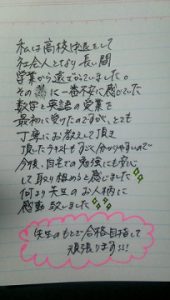 私は高校中退をして
社会人となり長い間
学業から遠ざかっていました。
その為に一番不安に感じていた
数学と英語の授業を
最初に受けたのですが、とても
丁寧にお教えして頂き
頂いたテキストもすごく分かりやすいので
今後、自宅での勉強にも安心
して取り組めると感じました
何より先生のお人柄に
感動致しました
先生のもとで合格目指して
頑張ります!!